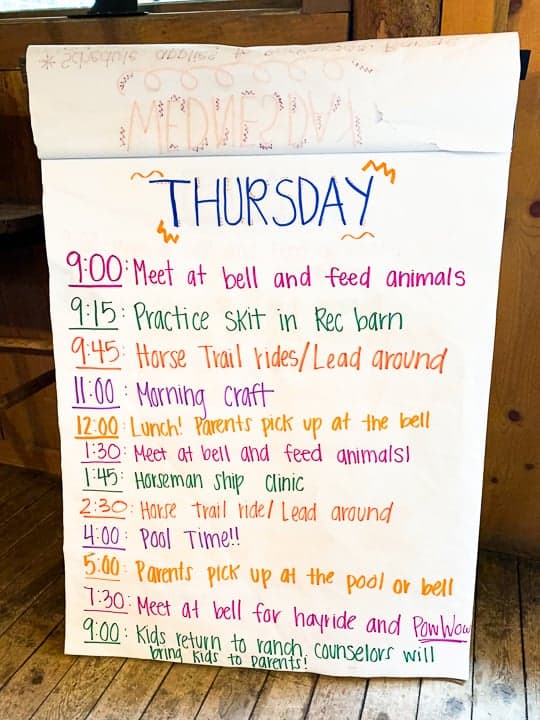 * Schedule applies to
WEDNESDAY
THURSDAY
9:00: Meet at bell and feed animals
9:15: Practice skit in Rec barn
9:45: Horse Trail rides/Lead around
11:00: Morning craft
12:00: Lunch! Parents pick up at the bell
1:30: Meet at bell and feed animals!
1:45: Horseman ship clinic
2:30: Horse trail ride/ Lead around
4:00: Pool Time!!
5:00: Parents pick up at the pool or bell
7:30: Meet at bell for hayride and PowWow
9:00: Kids return to ranch. counselors will
bring kids to parents!